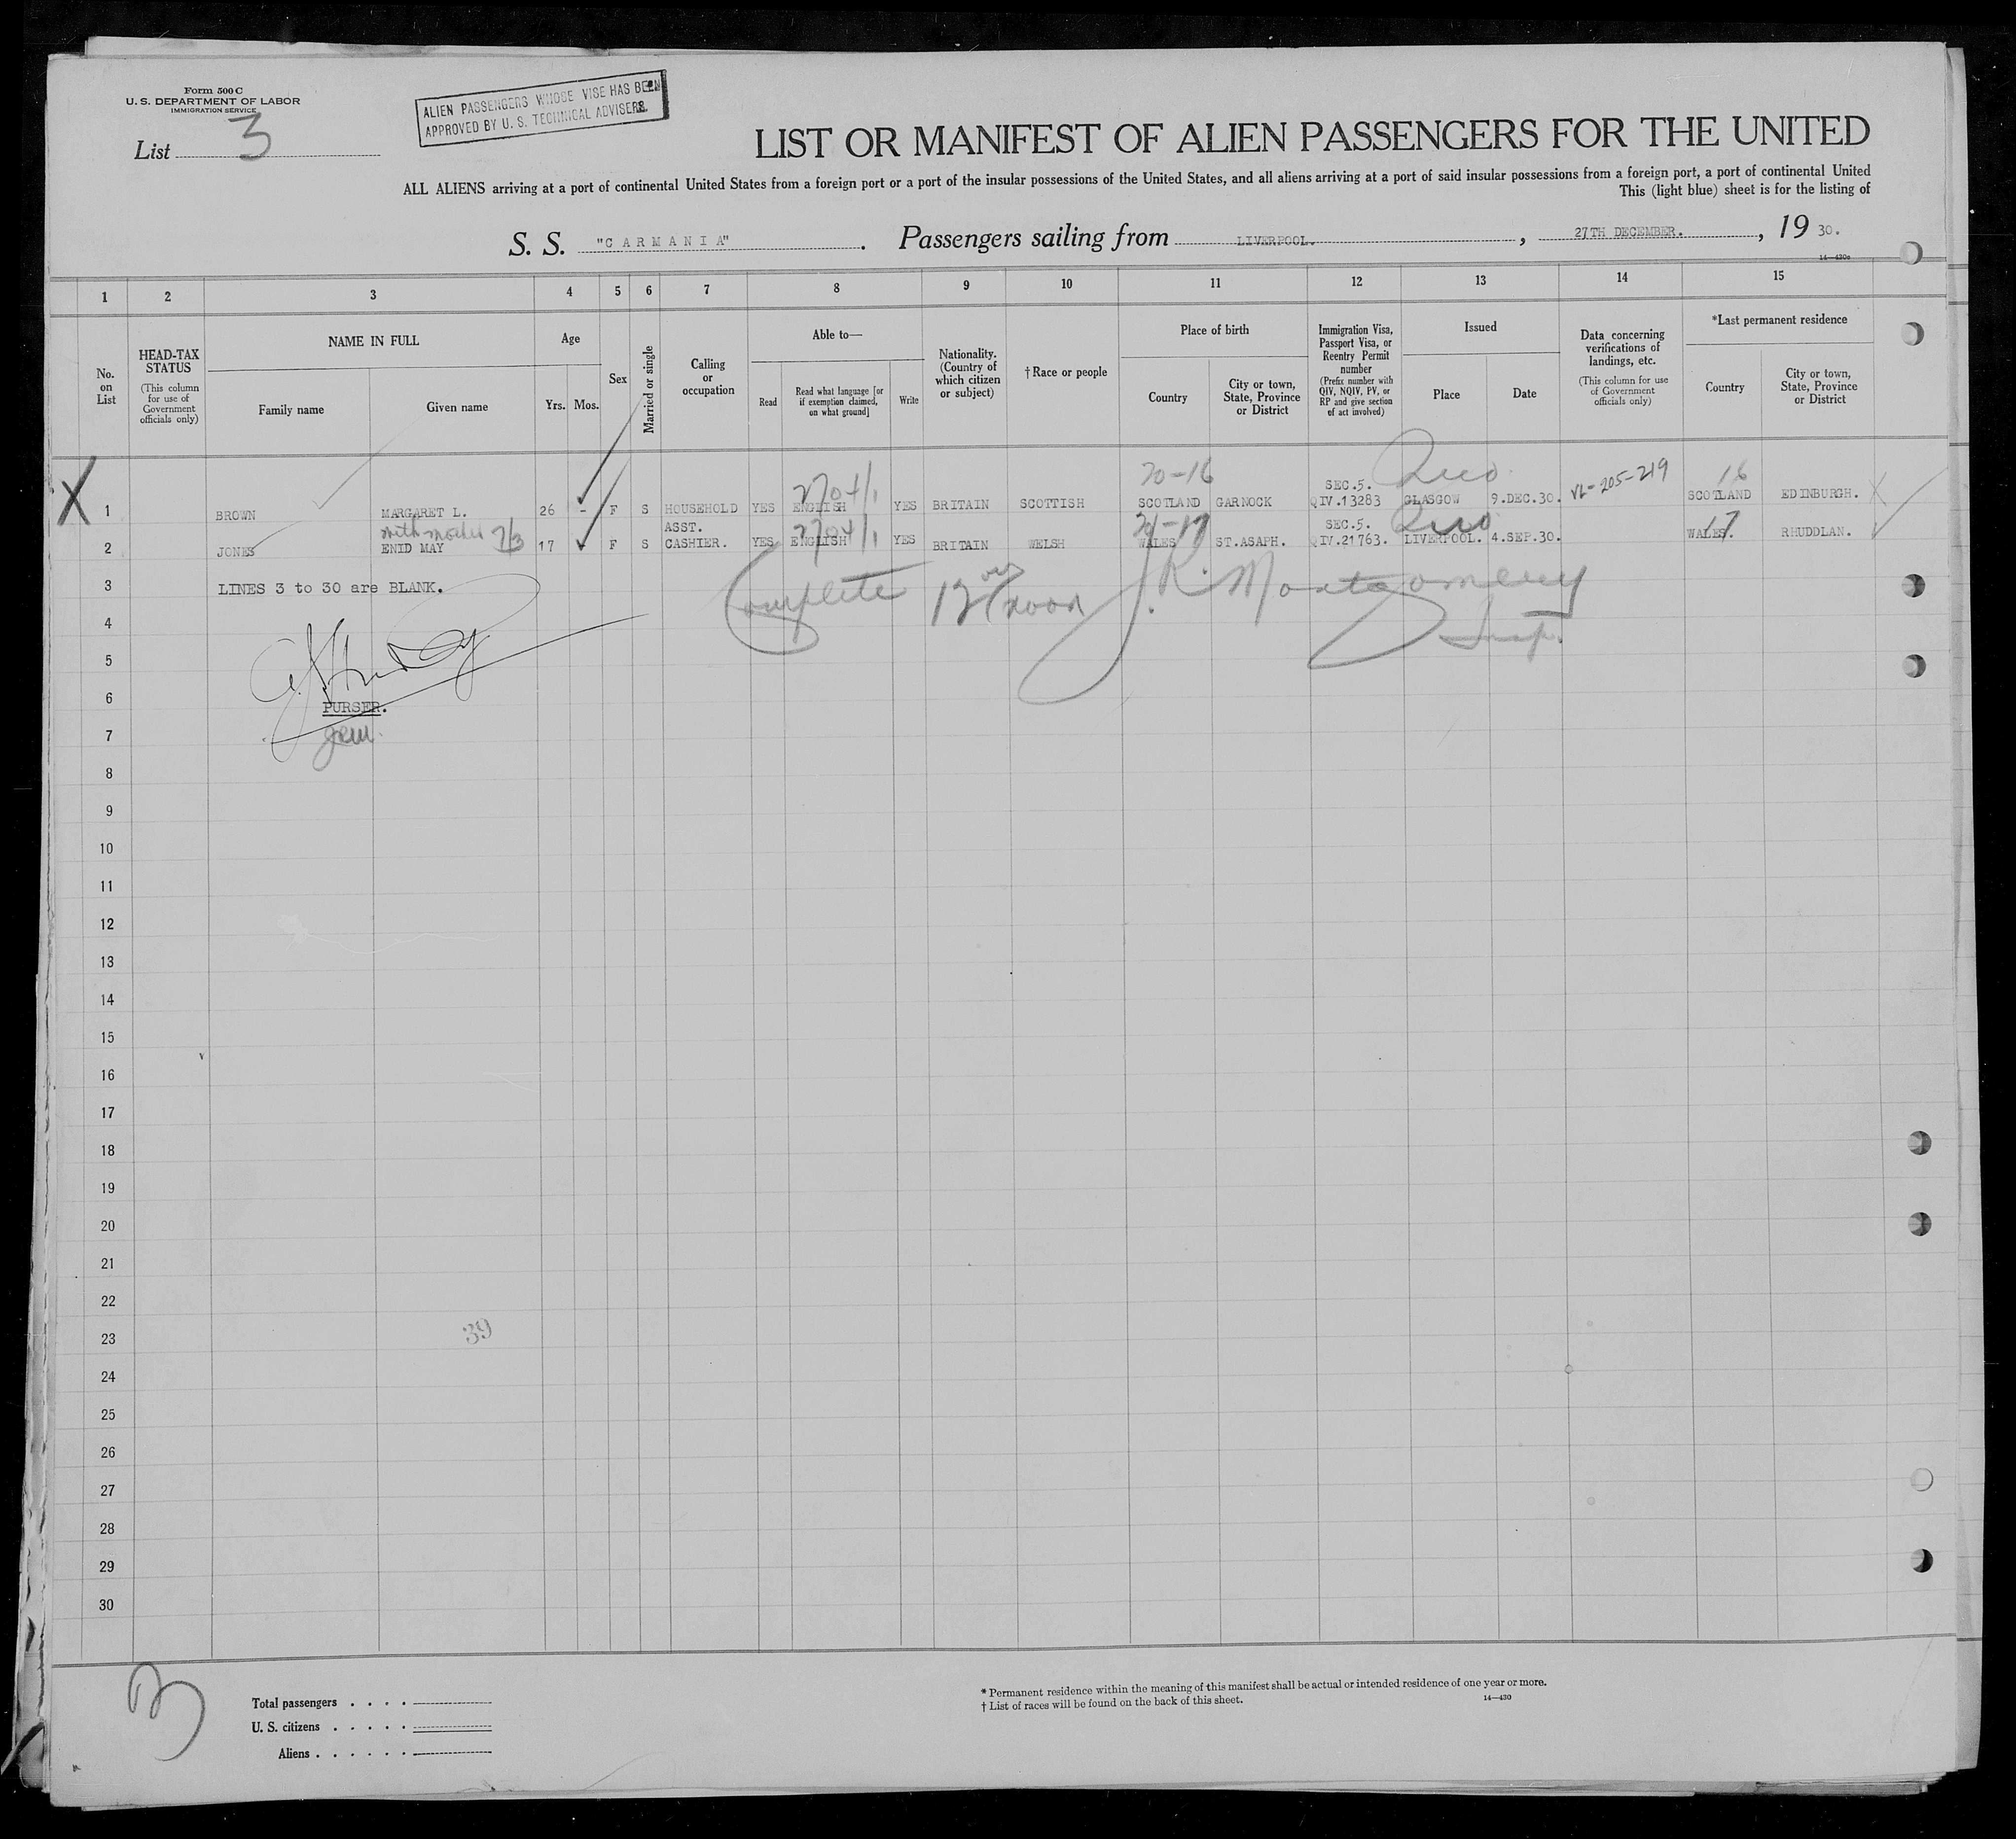 Form 500 C
U. S. DEPARTMENT OF LABOR
IMMIGRATION SERVICE
List 3
ALIEN PASSENGERS WHOSE VISE HAS BEEN
APPROVED BY U. S. TECHNICAL ADVISERS.
LIST OR MANIFEST OF ALIEN PASSENGERS FOR THE UNITED
ALL ALIENS arriving at a port of continental United States from a foreign port or a port of the insular possessions of the United States, and all aliens arriving at a port of said insular possessions from a foreign port, a port of continental United
This (light blue) sheet is for the listing of
S. S. "CARMANIA". Passengers sailing from LIVERPOOL., 27TH DECEMBER., 19 30.
14—430c
1 2 3 4 5 6 7 8 9 10 11 12 13 14 15
No. on List
HEAD-TAX STATUS (This column for use of Government officials only)
NAME IN FULL
Family name
Given name
Age
Yrs.
Mos.
Sex
Married or single
Calling or occupation
Able to—
Read
Read what language [or if exemption claimed, on what ground]
Write
Nationality. (Country of which citizen or subject)
† Race or people
Place of birth
Country
City or town, State, Province or District
Immigration Visa, Passport Visa, or Reentry Permit number (Prefix number with QIV, NQIV, PV, or RP and give section of act involved)
Issued
Place
Date
Data concerning verifications of landings, etc. (This column for use of Government officials only)
*Last permanent residence
Country
City or town, State, Province or District
2704/1 20-16 SEC.5. VL-205-219 16
X 1 BROWN MARGARET L. 26 - F S HOUSEHOLD YES ENGLISH YES BRITAIN SCOTTISH SCOTLAND GARNOCK QIV.13283 GLASGOW 9.DEC.30. SCOTLAND EDINBURGH. X
7/3 ASST. 2704/1 SEC.5. 17
2 JONES ENID MAY 17 F S CASHIER. YES ENGLISH YES BRITAIN WELSH WALES ST.ASAPH. QIV.21763. LIVERPOOL. 4.SEP.30. WALES. RHUDDLAN.
3 LINES 3 to 30 are BLANK. Complete 12 noon J. R. Montgomery
4 Insp.
5
6
PURSER.
7
8
9
10
11
12
13
14
15
16
17
18
19
20
21
22
23 39
24
25
26
27
28
29
30
3
Total passengers . . . .
U. S. citizens . . . . .
Aliens . . . . . .
* Permanent residence within the meaning of this manifest shall be actual or intended residence of one year or more.
† List of races will be found on the back of this sheet.
14—430